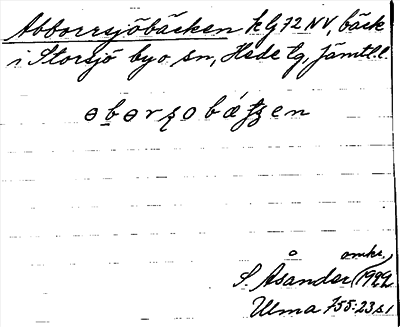 Abborrsjöbäcken kg 72 NV, bäck
i Storsjö by o. sn, Hede tg, Jämtl. l.
S. Åsander omkr. 1922
Ulma 755:23 s. 1